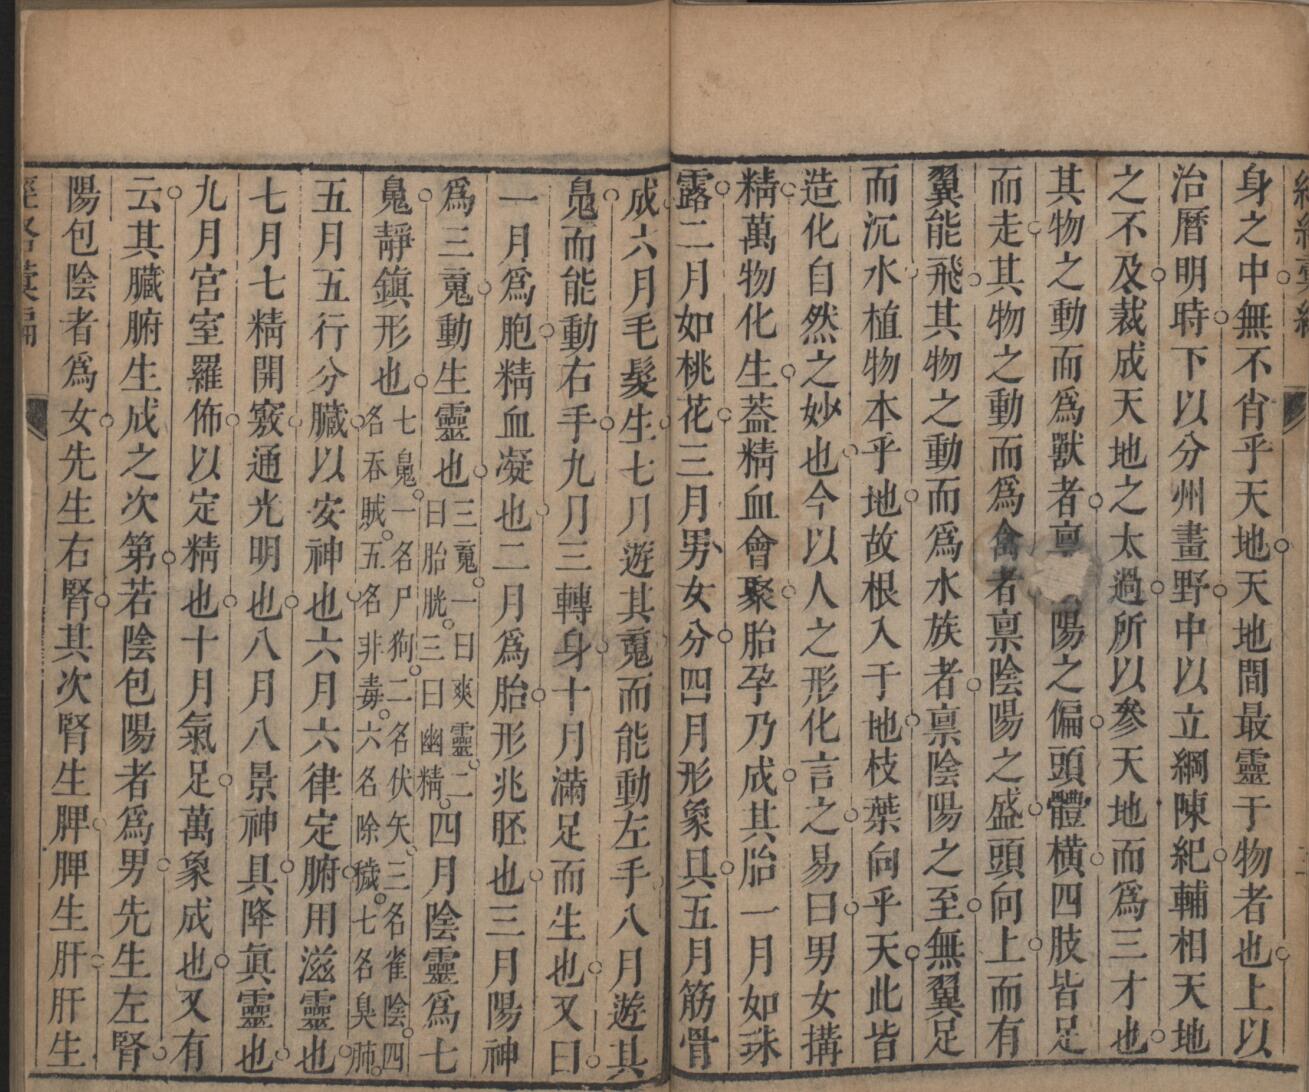 身之中無不肖乎天地天地間最靈于物者也上以
治曆明時下以分州畫野中以立綱陳紀輔相天地
之不及裁成天地之太過所以參天地而爲三才也
其物之動而爲獸者稟陽之偏頭體橫四肢皆足
而走其物之動而爲禽者禀陰陽之盛頭向上而有
翼能飛其物之動而爲水族者禀陰陽之至無翼足
而沉水植物本乎地故根入于地枝葉向乎天此皆
造化自然之妙也今以人之形化言之易曰男女搆
精萬物化生葢精血會聚胎孕乃成其胎一月如珠
露二月如桃花三月男女分四月形象具五月筋骨
成六月毛髮生七月遊其䰟而能動左手八月遊其
䰟而能動右手九月三轉身十月滿足而生也又曰
一月爲胞精血凝也二月爲胎形兆胚也三月陽神
爲三䰟動生靈也三䰟一曰爽靈二曰胎胱三曰幽精四月陰靈爲七
鬼靜鎮形也七鬼一名尸狗二名伏矢三名雀陰四名吞賊五名非毒六名除穢七名臭肺
五月五行分臟以安神也六月六律定腑用滋靈也
七月七精開竅通光明也八月八景神具降眞靈也
九月宮室羅佈以定精也十月氣足萬象成也又有
云其臟腑生成之次第若陰包陽者爲男先生左腎
陽包陰者爲女先生右腎其次腎生脾脾生肝肝生
經絡彙編